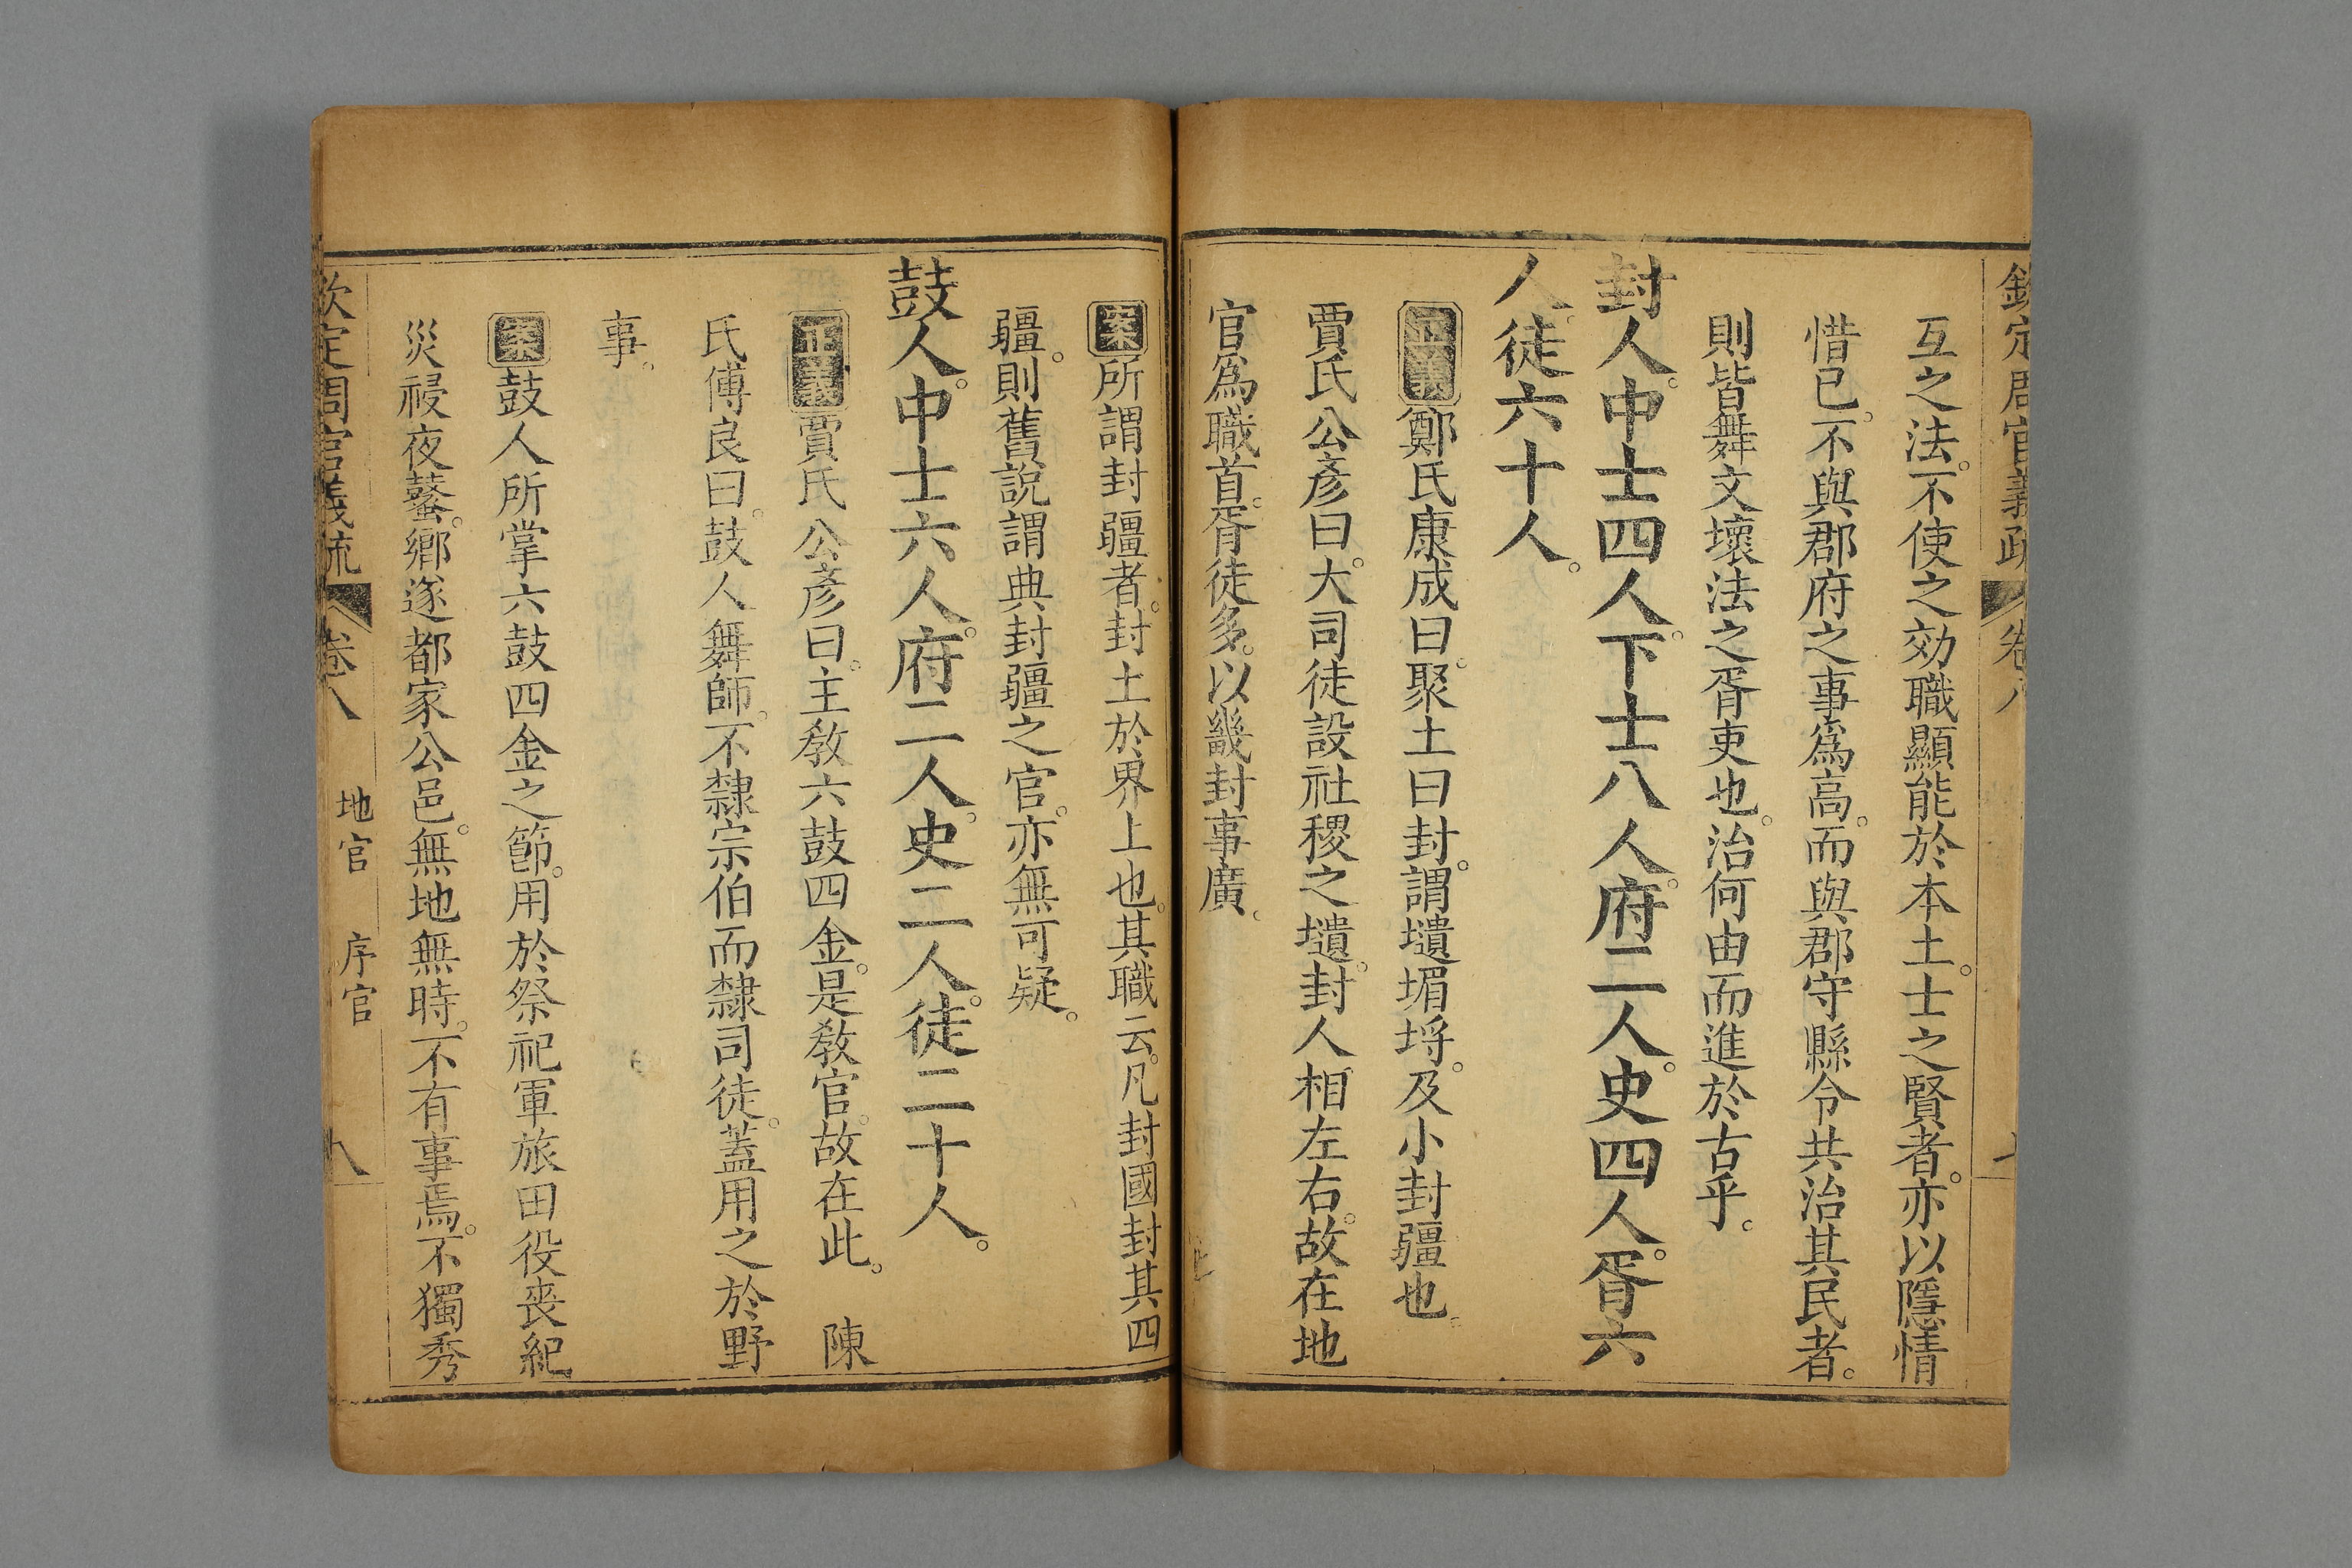 欽定周官義疏 卷八
互之法。不使之効職顯能於本土。士之賢者。亦以隱情
惜已。不與郡府之事爲高。而與郡守縣令共治其民者。
則皆舞文壞法之胥吏也。治何由而進於古乎。
封人。中士四人。下士八人。府二人。史四人。胥六
人。徒六十人。
正義鄭氏康成曰。聚土曰封。謂壝堳埒。及小封疆也。
賈氏公彥曰。大司徒設社稷之壝。封人相左右。故在地
官爲職首。胥徒多。以畿封事廣。
案所謂封疆者。封土於界上也。其職云。凡封國封其四
疆。則舊說謂典封疆之官。亦無可疑。
鼓人。中士六人。府二人。史二人。徒二十人。
正義賈氏公彥曰。主敎六鼓四金。是敎官。故在此。 陳
氏傅良曰。鼓人舞師。不隸宗伯而隸司徒。蓋用之於野
事。
案鼓人所掌六鼓四金之節。用於祭祀軍旅田役喪紀
災祲夜鼜。鄉遂都家公邑。無地無時。不有事焉。不獨秀
欽定周官義疏 卷八 地官 序官 八